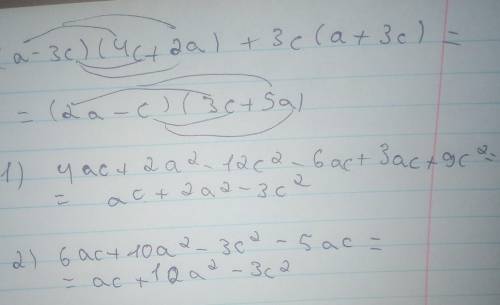 (a-3c)(4c+2a)+3c(a+3c)=
=(2a-c)(3c+5a)
1) 4ac+2a²-12c²-6ac+3ac+9c²=
= ac+2a²-3c²
2) 6ac+10a²-3c²-5ac=
=ac+10a²-3c²